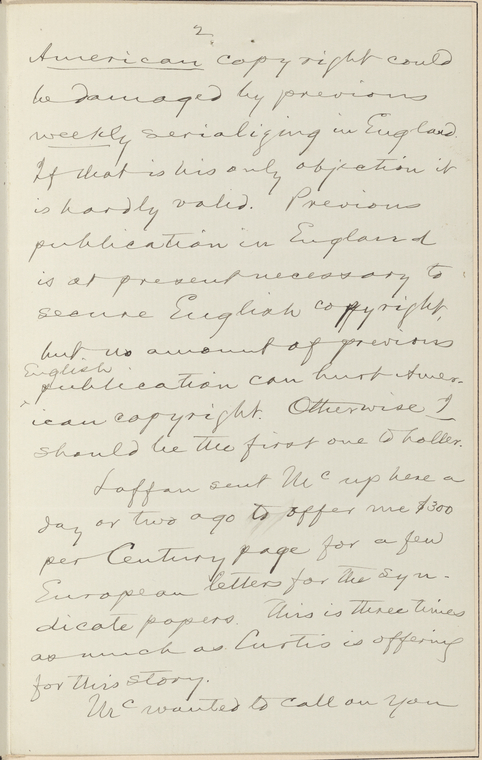 2
American copyright could
be damaged by previous
weekly serializing in England.
If that is his only objection it
is hardly valid. Previous
publication in England
is at present necessary to
secure English copyright,
but no amount of previous
English
publication can hurt Amer-
ican copyright. Otherwise I
should be the first one to holler.
Laffan sent Mc up here a
day or two ago to offer me $300
per Century page for a few
European letters for the Syn-
dicate papers. This is three times
as much as Curtis is offering
for this story.
Mc wanted to call on you